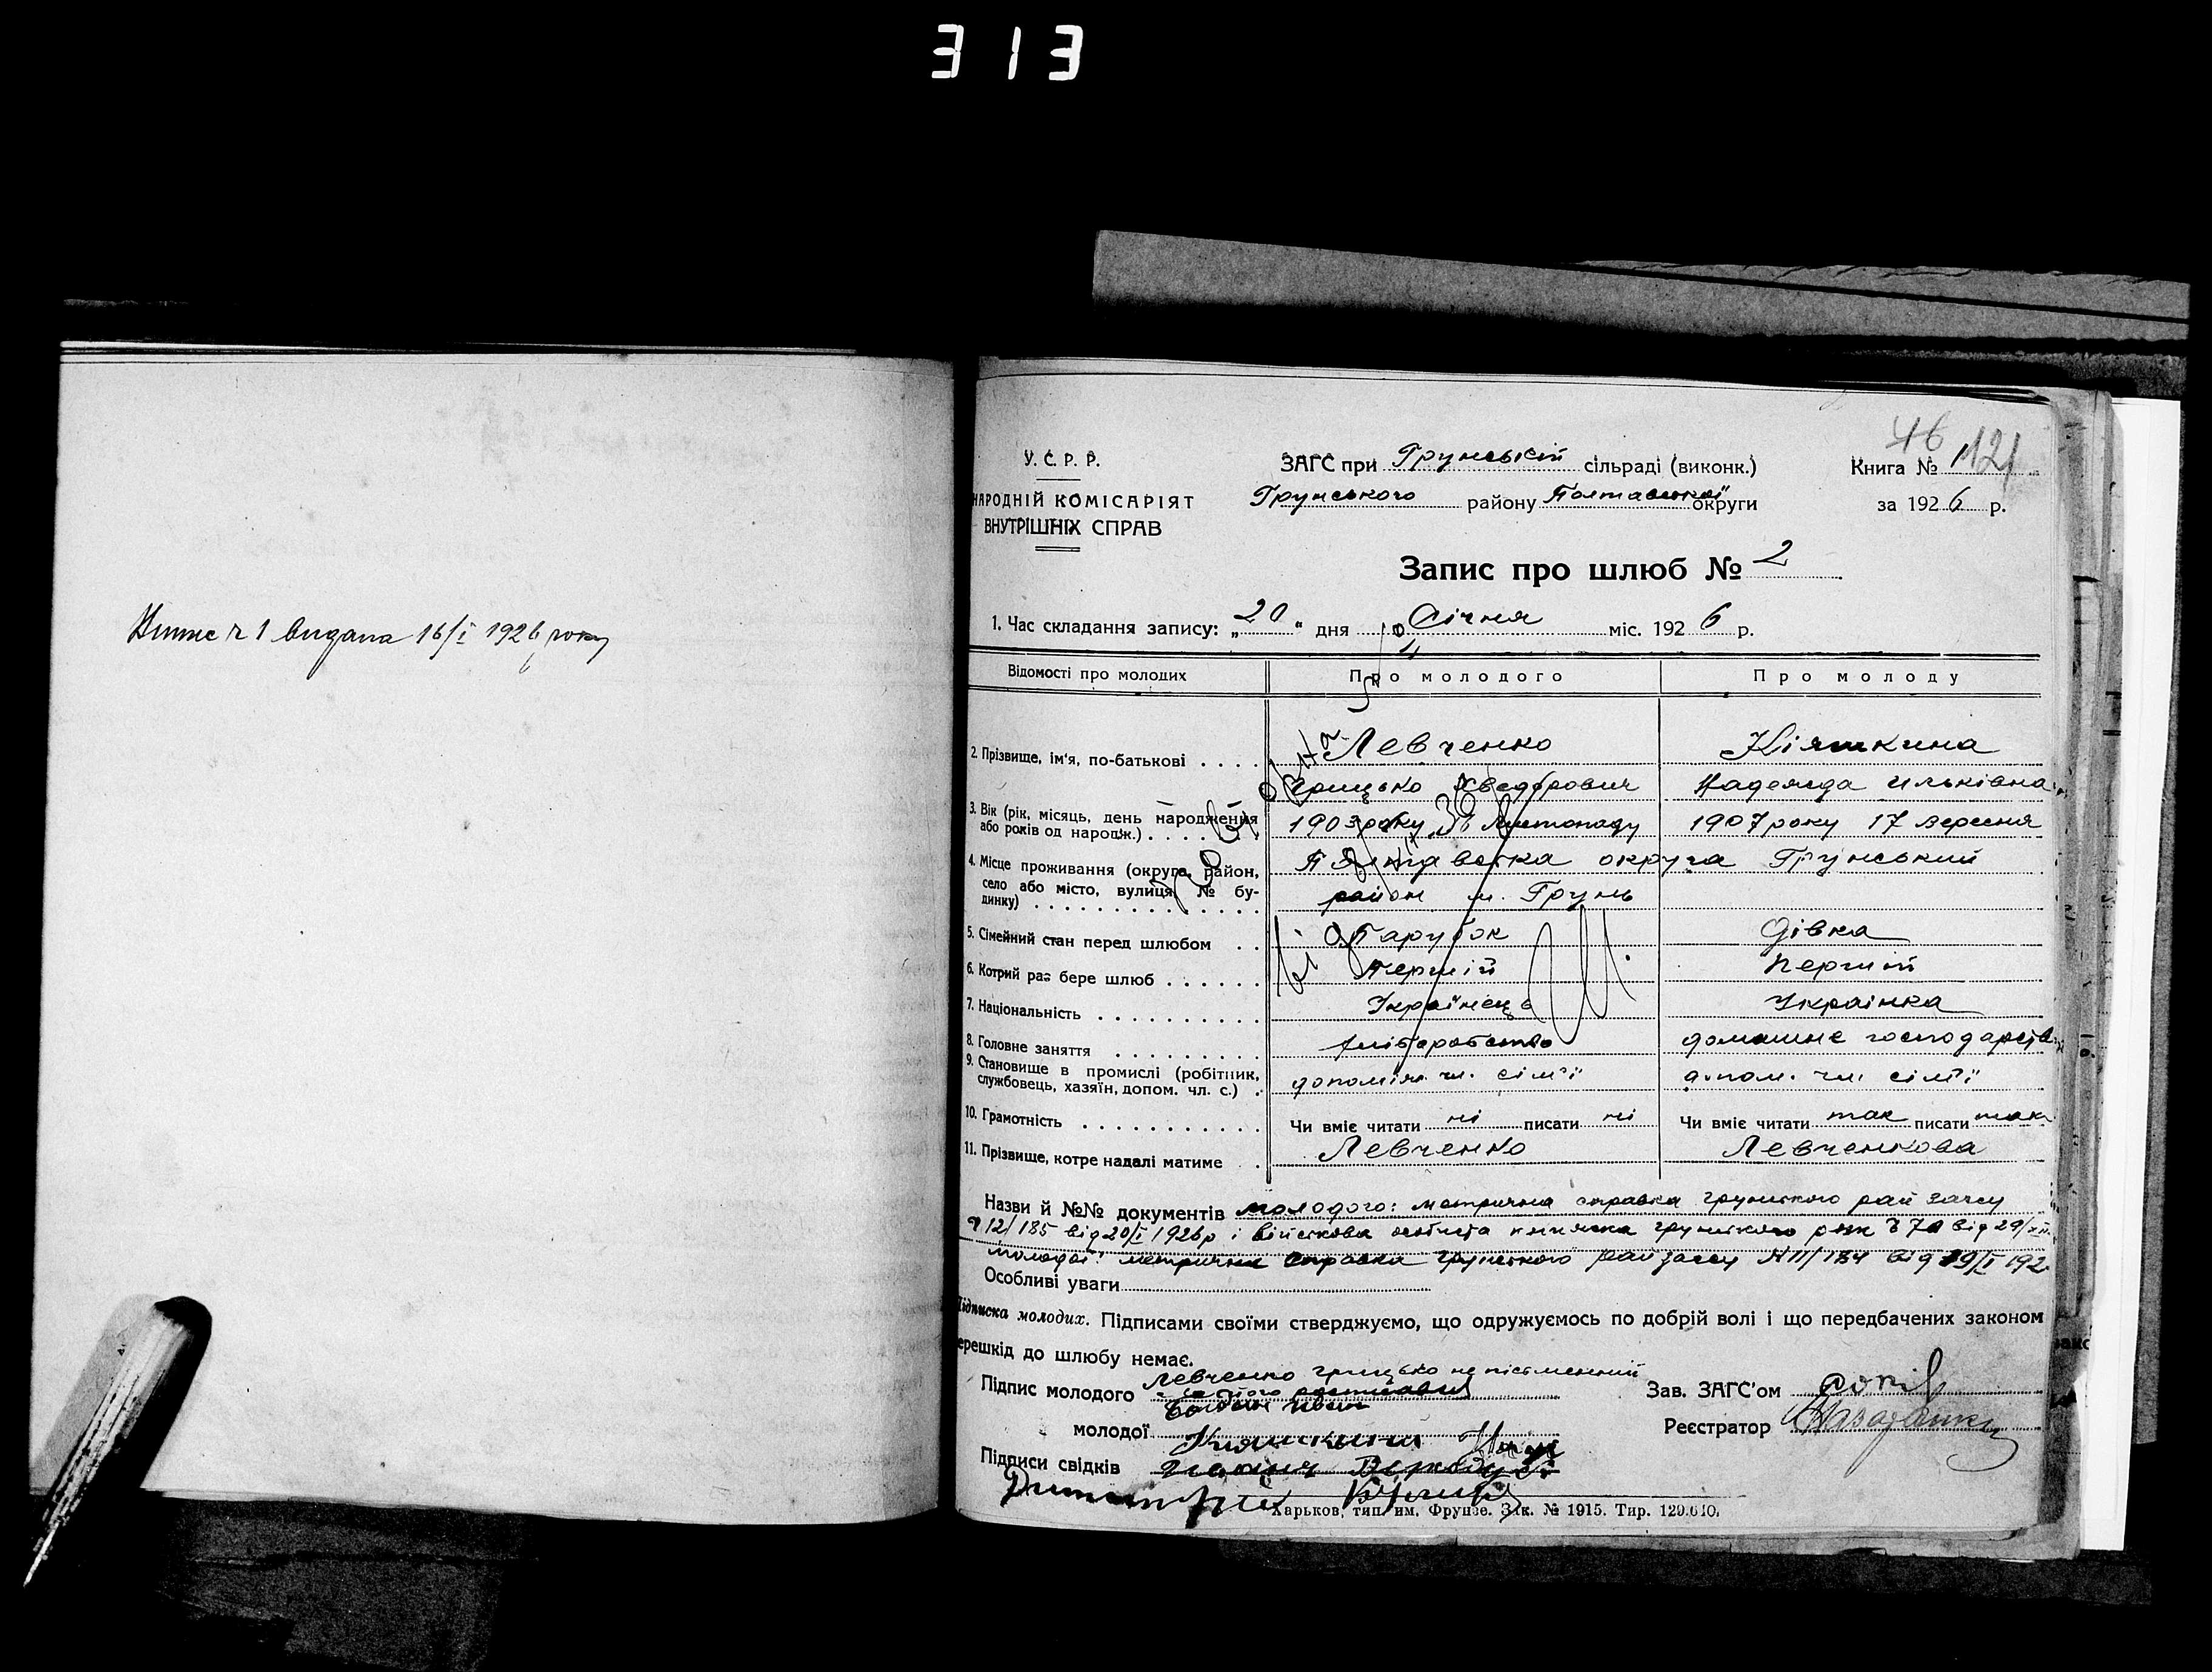 313
Випис ч 1 видана 16/I 1926 року
46
121
У. С. Р. Р.
НАРОДНІЙ КОМІСАРІЯТ
ВНУТРІШНІХ СПРАВ
ЗАГС при Грунській сільраді (виконк.)
Грунського району Полтавської округи
Книга №
за 1926 р.
Запис про шлюб № 2
1. Час складання запису: „20“ дня Січня міс. 1926 р.
Відомості про молодих Про молодого Про молоду
2. Прізвище, ім'я, по-батькові . . . . Левченко Кіяшкина
Грицько Хведорович Надежда Ильківна
3. Вік (рік, місяць, день народження
або років од народж.) . . . . 1903 року Листопаду 1907 року 17 вересня
4. Місце проживання (округа, район,
село або місто, вулиця, № бу-
динку) . . . . . . . . . . . . . .
Полтавська округа Грунський
район м. Грунь
5. Сімейний стан перед шлюбом . . Парубок Дівка
6. Котрий раз бере шлюб . . . . . . Перший Перший
7. Національність . . . . . . . . . . Українець Українка
8. Головне заняття . . . . . . . . . хліборобство домашнє господарств
9. Становище в промислі (робітник,
службовець, хазяїн, допом. чл. с.) . допоміж. чл. сім'ї допом. чл. сім'ї
10. Грамотність . . . . . . . . . . . Чи вміє читати ні писати ні Чи вміє читати так писати так
11. Прізвище, котре надалі матиме . Левченко Левченкова
Назви й №№ документів молодого: метрична справка грунського рай загсу
ч 12/185 від 20/I 1926 р і військова особиста книжка грунського від 29/
молодої: метрична справка грунського рай загсу № 11/184 від 19/I 192
Особливі уваги
Підписка молодих. Підписами своїми стверджуємо, що одружуємось по добрій волі і що передбачених законом
ерешкід до шлюбу немає.
Підпис молодого Левченко Грицько неписьменний
за його росписався
Іван
молодої Кияшкина
Підписи свідків
Зав. ЗАГС'ом
Реєстратор
Харьков, тип. им. Фрунзе. Зак. № 1915. Тир. 129.610.